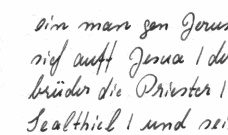 ein man gen Jerus
sich auff Jesua / de
brüder die Priester /
Sealthiel / und sei